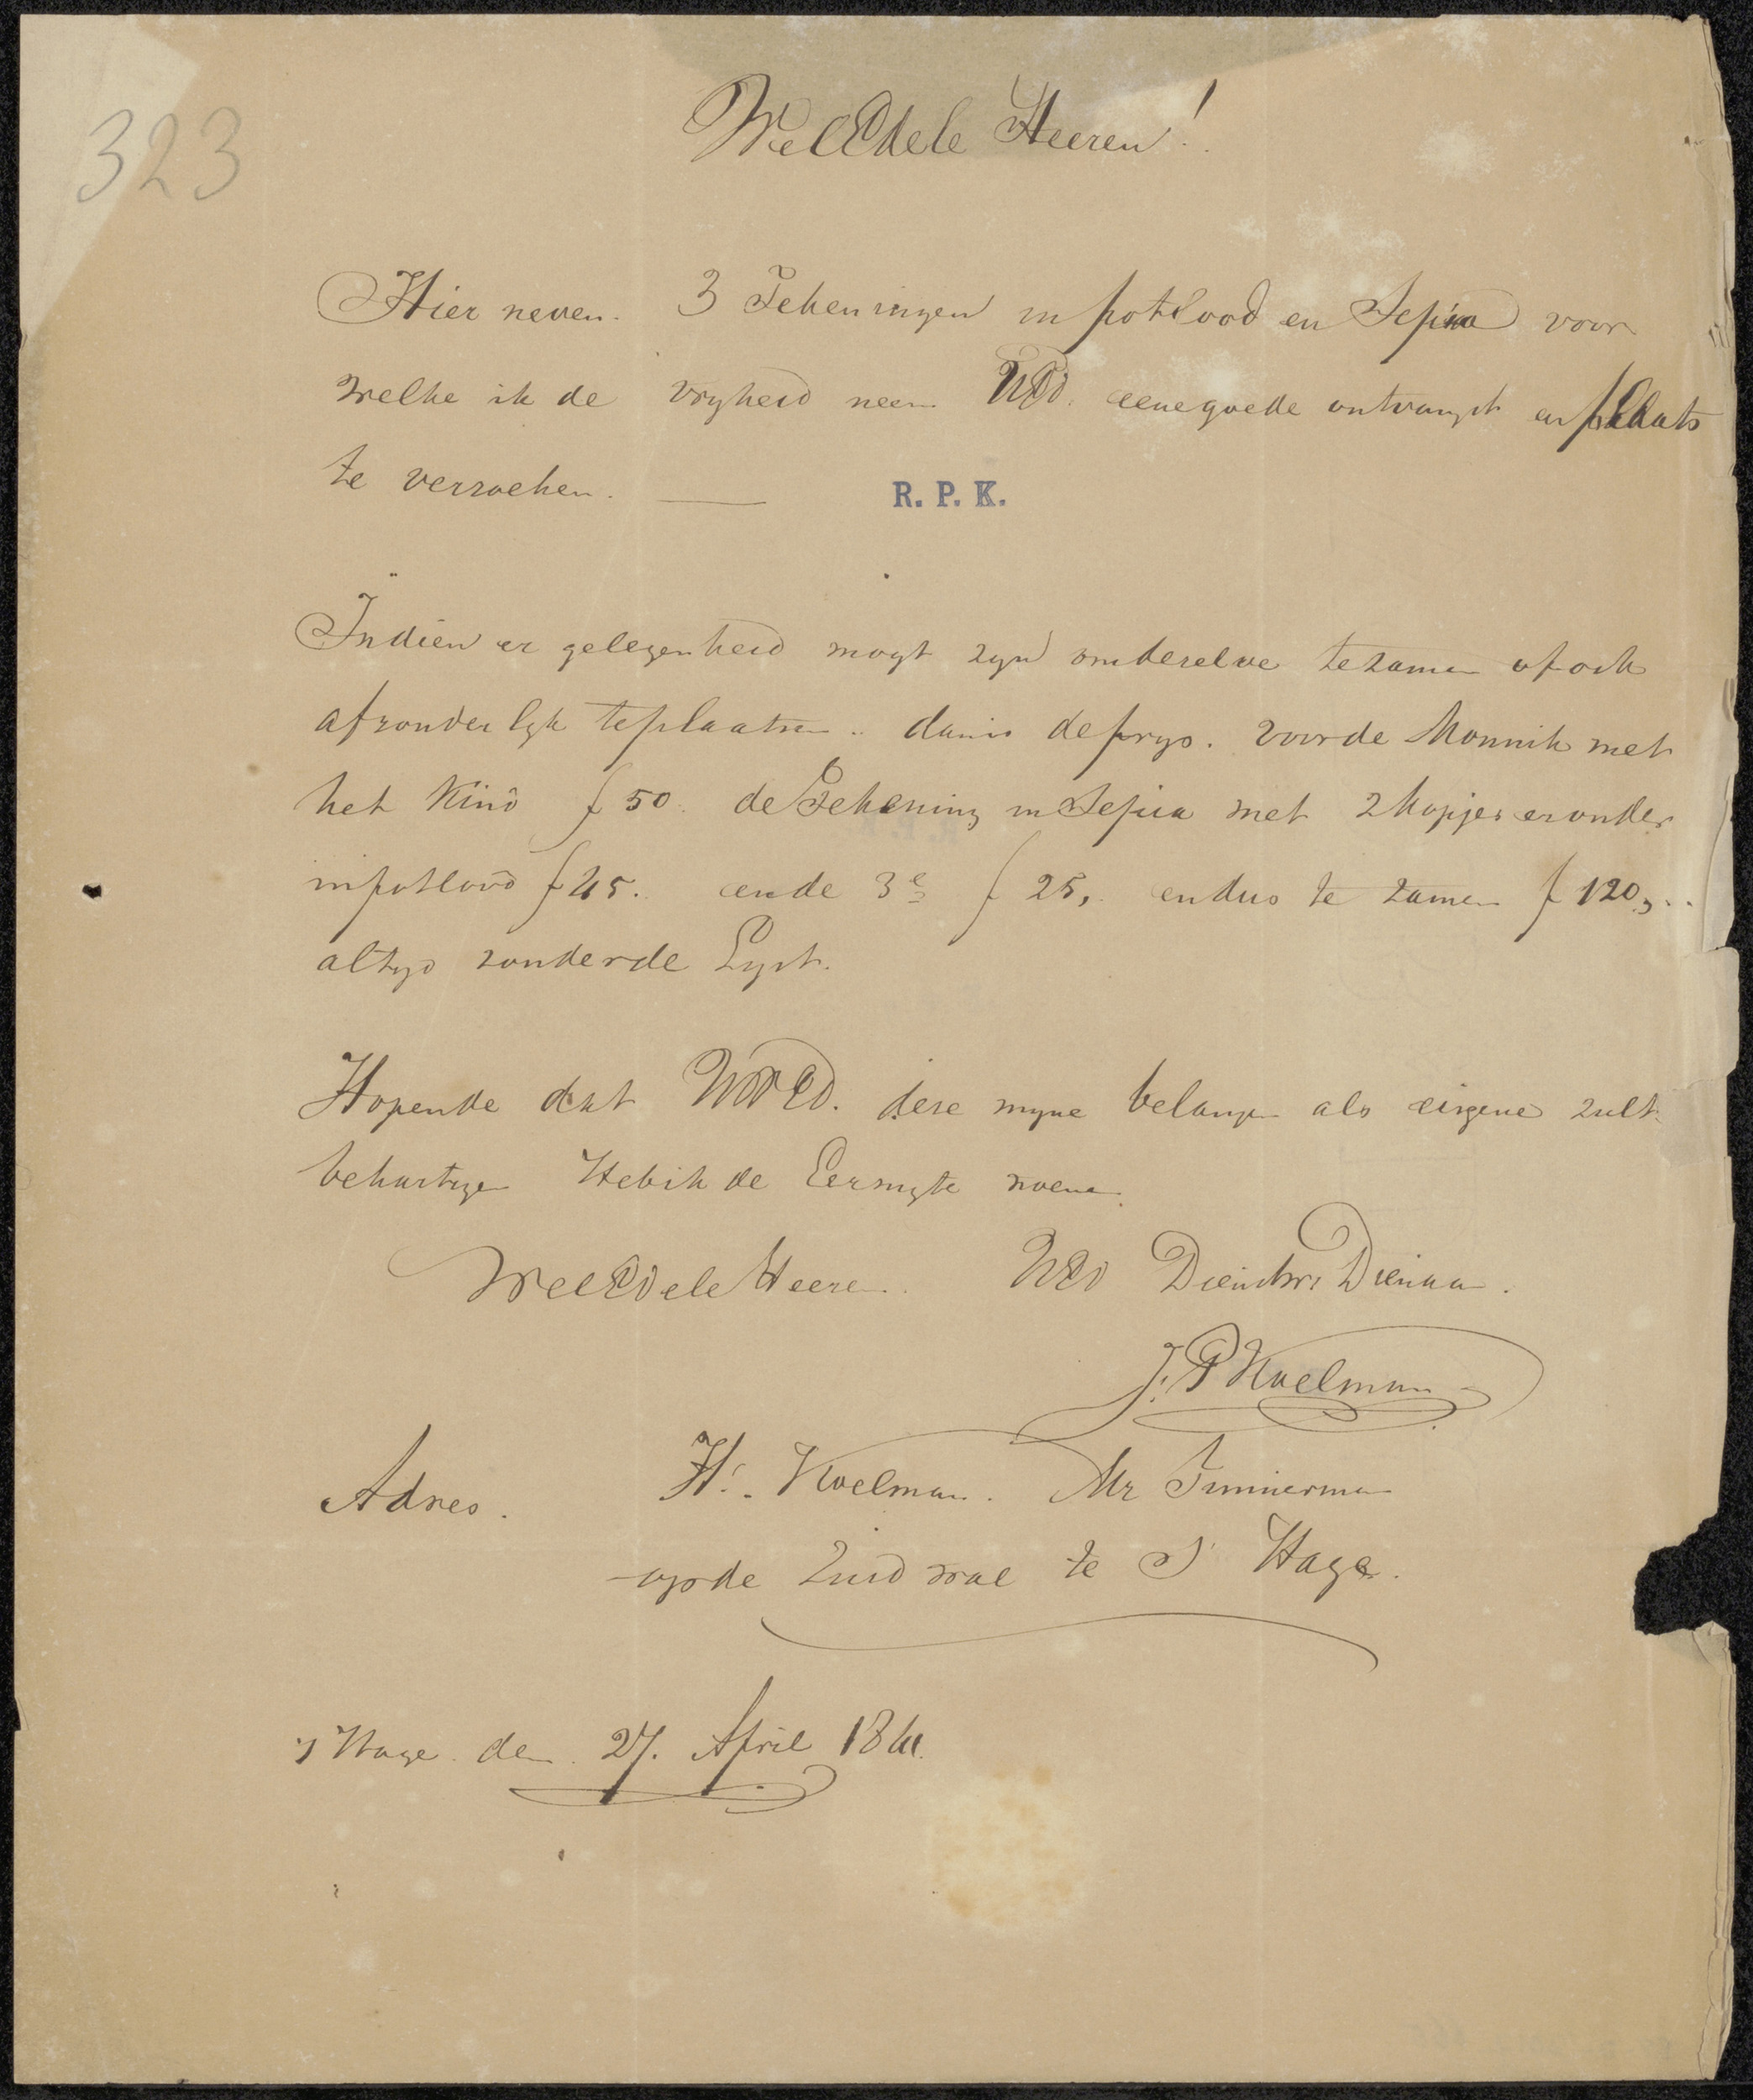 323
WelEdele Heeren!
Hier neven. 3 Tekeningen in potlood en Sepia voor
welke ik de vryheid neem UEd. eene goede ontvangst en plaats
te verzoeken.
R. P. K.
Indien er gelegenheid mogt zyn om deselve te zamen of ook
afzonderlyk te plaatsen .. dan is de prys. voor de Monnik met
het Kind f 50. de Tekening in Sepia met 2 kopjes er onder
in potlood f 45. en de 3e f 25,. en dus te zamen f 120,..
altyd zonder de Lyst.
Hopende dat UWEd. dese myne belangen als eigene zult
behartigen Heb ik de Eer my te noemen.
WelEdele Heeren. UEd Dienstw. Dienaar.
J. P Koelman
Adres. H. Koelman. Mr Timmerman
op de Zuid wal te S' Hage.
's Hage den 27. April 1841.